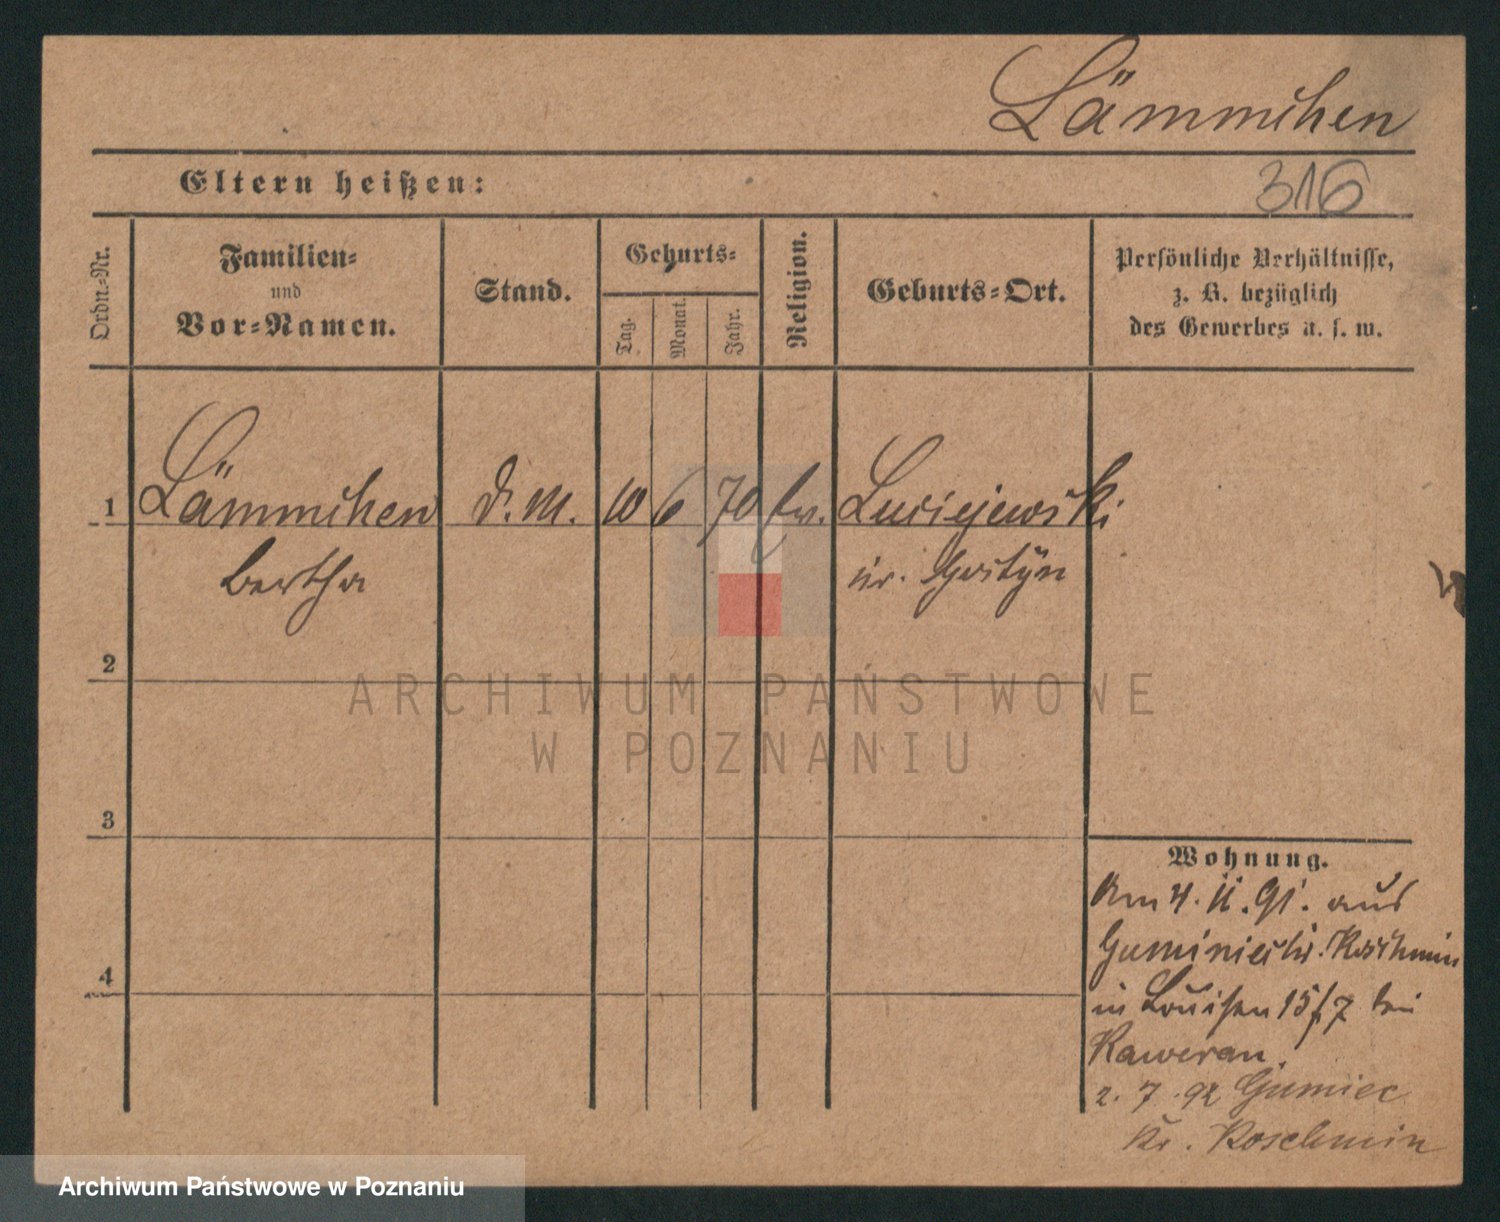 Lämmchen
316
Eltern heißen:
Ordn.-Nr.
Familien-
und
Vor-Namen.
Stand.
Geburts-
Tag.
Monat.
Jahr.
Religion.
Geburts-Ort.
Persönliche Verhältnisse,
z. B. bezüglich
des Gewerbes u. s. w.
1 Lämmchen d. M. 10 6 70 ev. Luciejewski
Bertha Kr. Gostÿn
2
3
4
Wohnung.
Am 4. 11. 91. aus
Kr. Koschmin
in Louisen 15/7 bei
Kawerau.
2. 7. 92 Gumiec
Kr. Koschmin
ARCHIWUM PAŃSTWOWE
W POZNANIU
Archiwum Państwowe w Poznaniu